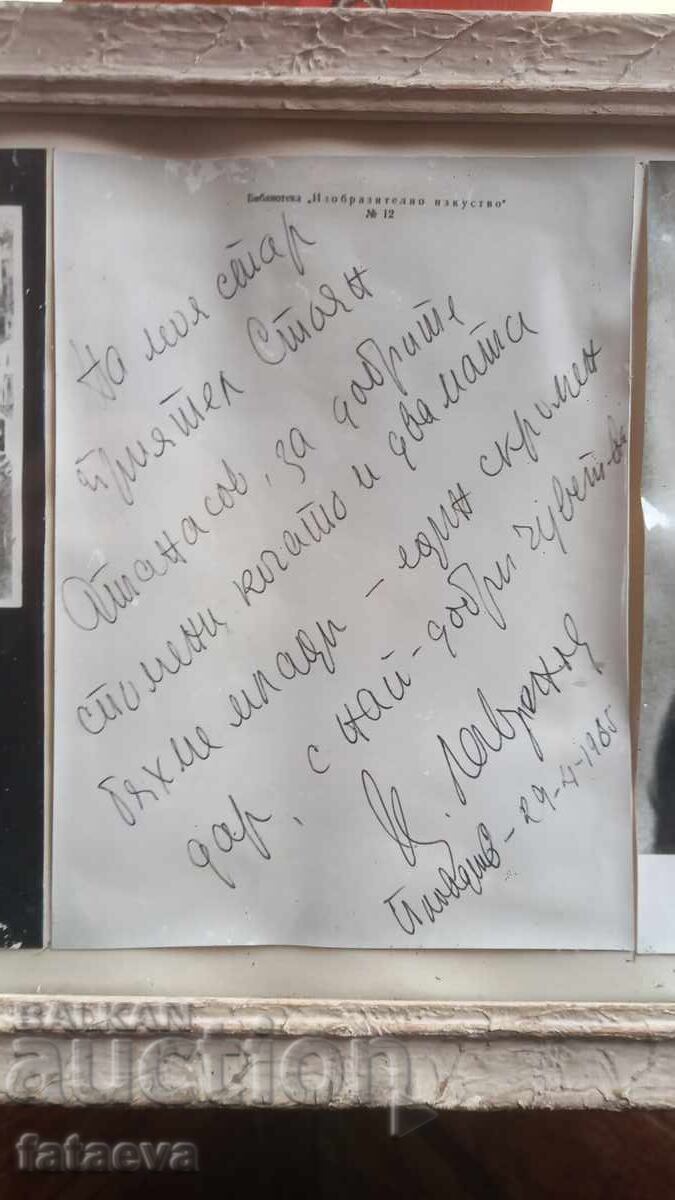 Библиотека „Изобразително изкуство"
№ 12
На моя стар
приятел Стоян
Атанасов, за добрите
спомени, когато и двамата
бяхме млади – един скромен
дар, с най-добри чувства
Ц. Лавренов
Пловдив - 29-4-1965
BALKAN
auction
fataeva